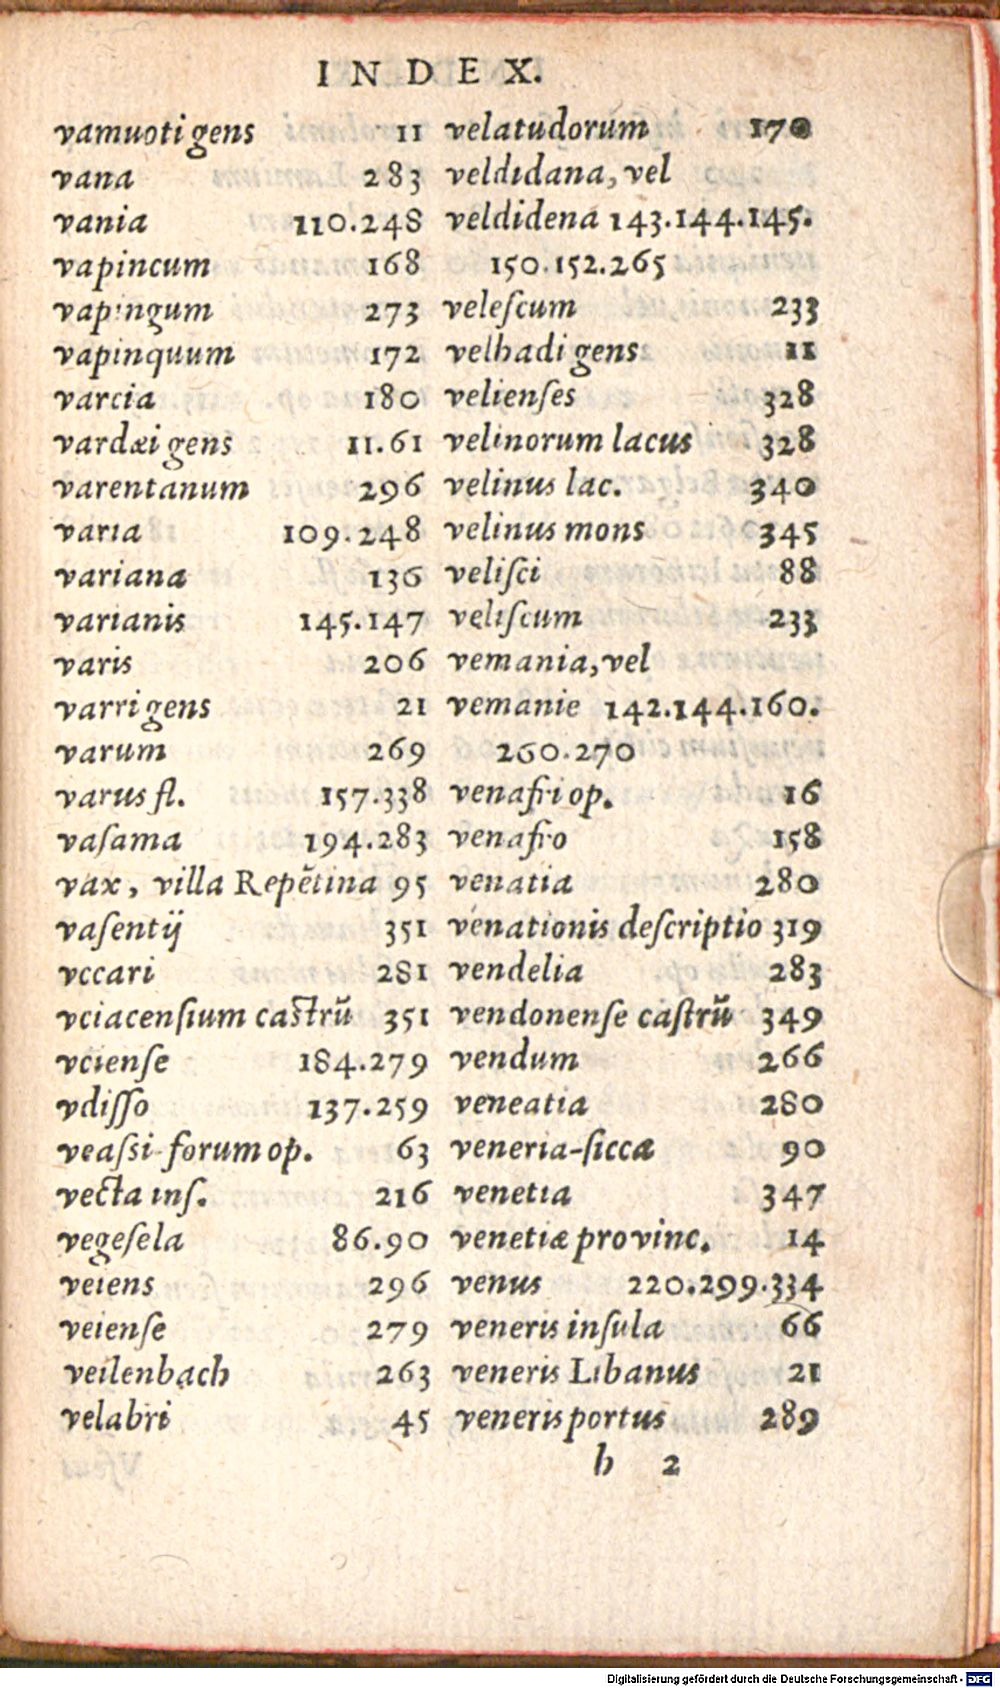 INDEX.
vamuoti gens 11
vana 283
vania 110.248
vapincum 168
vapingum 273
vapinquum 172
varcia 180
vardæi gens 11.61
varentanum 296
varia 109.248
variana 136
varianis 145.147
varis 206
varri gens 21
varum 269
varus fl. 157.338
vaſama 194.283
vax, villa Repẽtina 95
vaſentij 351
vccari 281
vciacenſium caſtrũ 351
vcienſe 184.279
vdiſſo 137.259
veaſsi-forum op. 63
vecta inſ. 216
vegeſela 86.90
veiens 296
veienſe 279
veilenbach 263
velabri 45
velatudorum 170
veldidana, vel
veldidena 143.144.145.
150.152.265
veleſcum 233
velhadi gens 11
velienſes 328
velinorum lacus 328
velinus lac. 340
velinus mons 345
veliſci 88
veliſcum 233
vemania, vel
vemanie 142.144.160.
260.270
venafri op. 16
venafro 158
venatia 280
venationis deſcriptio 319
vendelia 283
vendonenſe caſtrũ 349
vendum 266
veneatia 280
veneria-ſicca 90
venetia 347
venetiæ provinc. 14
venus 220.299.334
veneris inſula 66
veneris Libanus 21
veneris portus 289
h 2
Digitalisierung gefördert durch die Deutsche Forschungsgemeinschaft - DFG